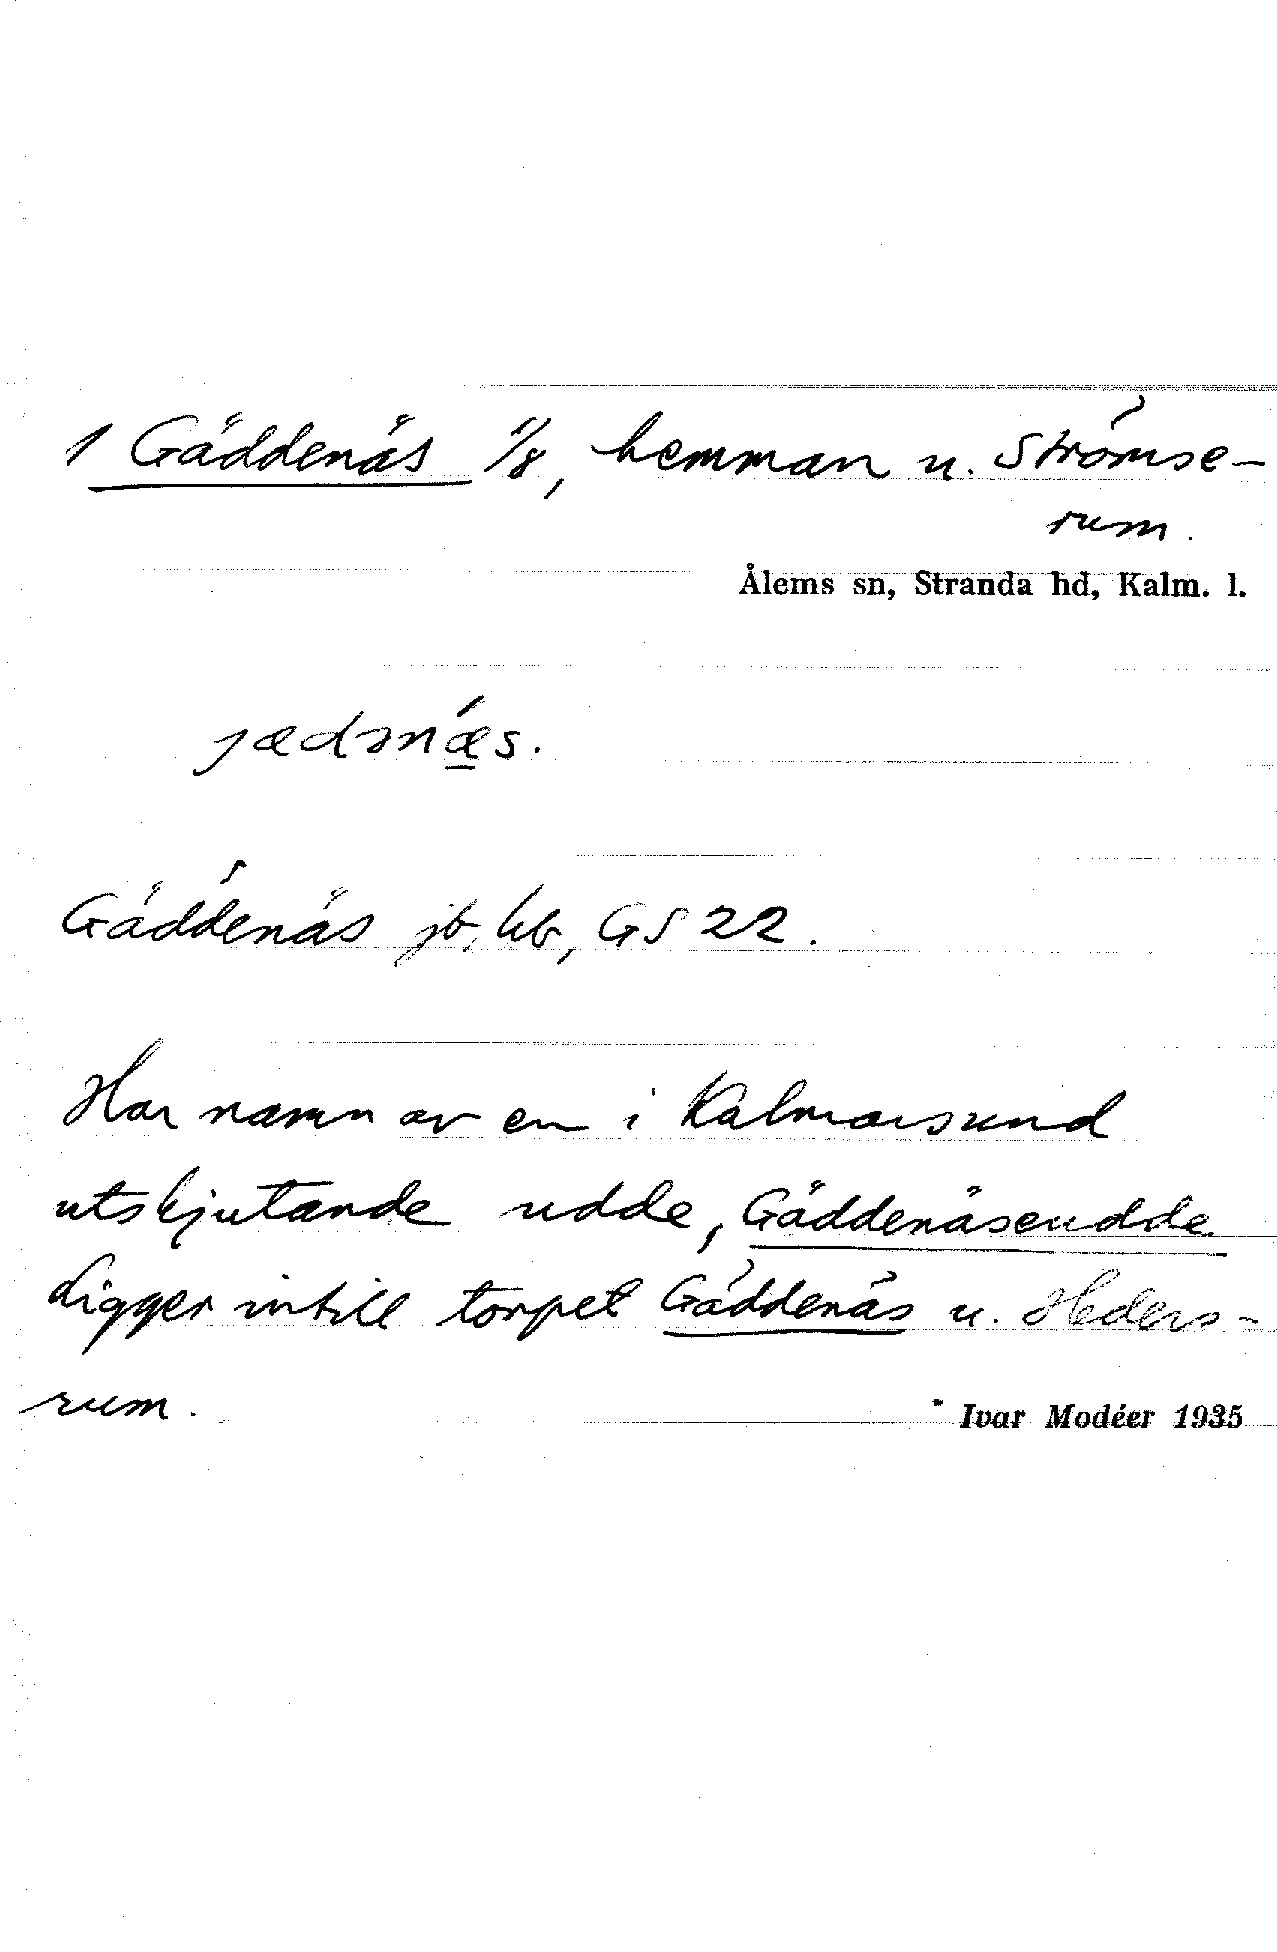 1 Gäddenäs 1/8, hemman u. Strömse-
rum.
Ålems sn, Stranda hd, Kalm. l.
jædənæs.
Gäddenäs jb, hb, GS 22.
Har namn av en i Kalmarsund
utskjutande udde, Gäddenäseudde.
Ligger intill torpet Gäddenäs u. Heders-
rum.
Ivar Modéer 1935